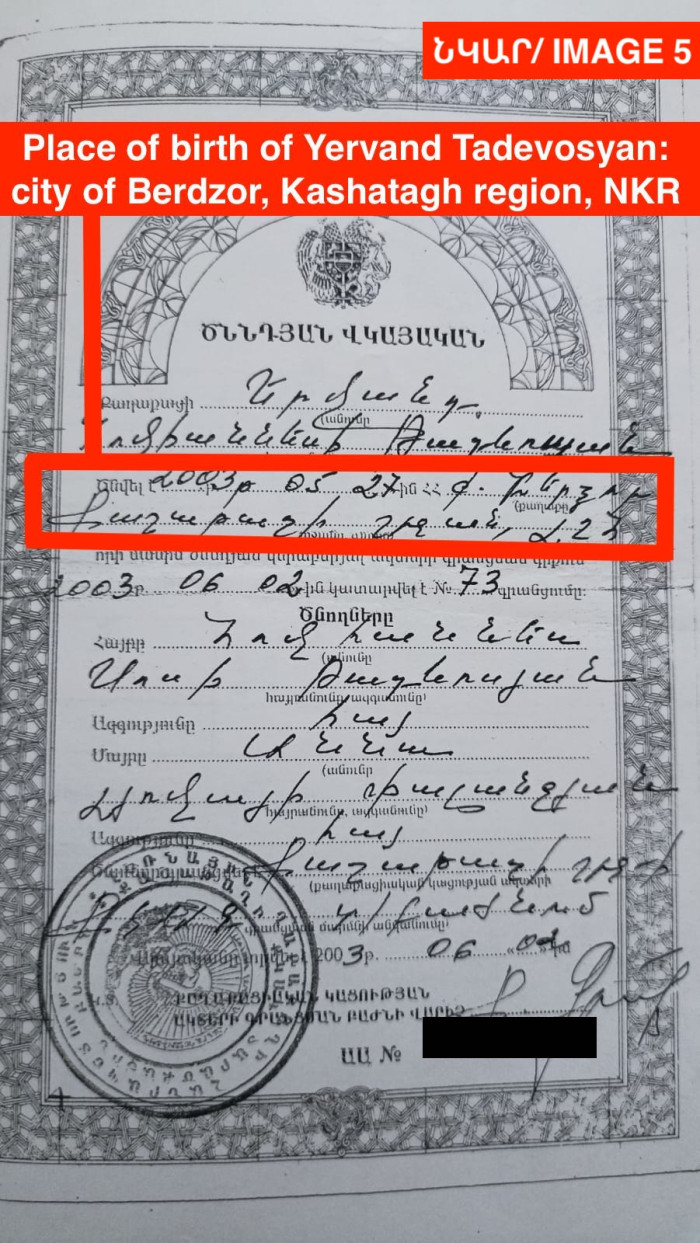 ՆԿԱՐ/ IMAGE 5
Place of birth of Yervand Tadevosyan:
city of Berdzor, Kashatagh region, NKR
ԾՆՆԴՅԱՆ ՎԿԱՅԱԿԱՆ
Քաղաքացի Երվանդ
(անունը
Հովհաննեսի Թադևոսյան
Ծնվել է 2003թ 05 27-ին ՀՀ ք. Բերձոր
(քաղաքը
Քաշաթաղի շրջան, ԼՂՀ
որի մասին ծննդյան
2003թ. 06 02-ին կատարվել է № 73 գրանցումը:
Ծնողները
Հայրը Հովհաննես
(անունը
Սոսի Թադևոսյան
հայրանունը, ազգանունը)
Ազգությունը հայ
Մայրը Աննա
(անունը
հայրանունը, ազգանունը)
Ազգությունը հայ
Քաշաթաղի շրջ
(քաղաքացիական կացության ակտերի
գրանցման մարմնի անվանումը)
2003թ. 06 02
ՔԱՂԱՔԱՑԻԱԿԱՆ ԿԱՑՈՒԹՅԱՆ
ԱԿՏԵՐԻ ԳՐԱՆՑՄԱՆ ԲԱԺՆԻ ՎԱՐԻՉ
ԱԱ №